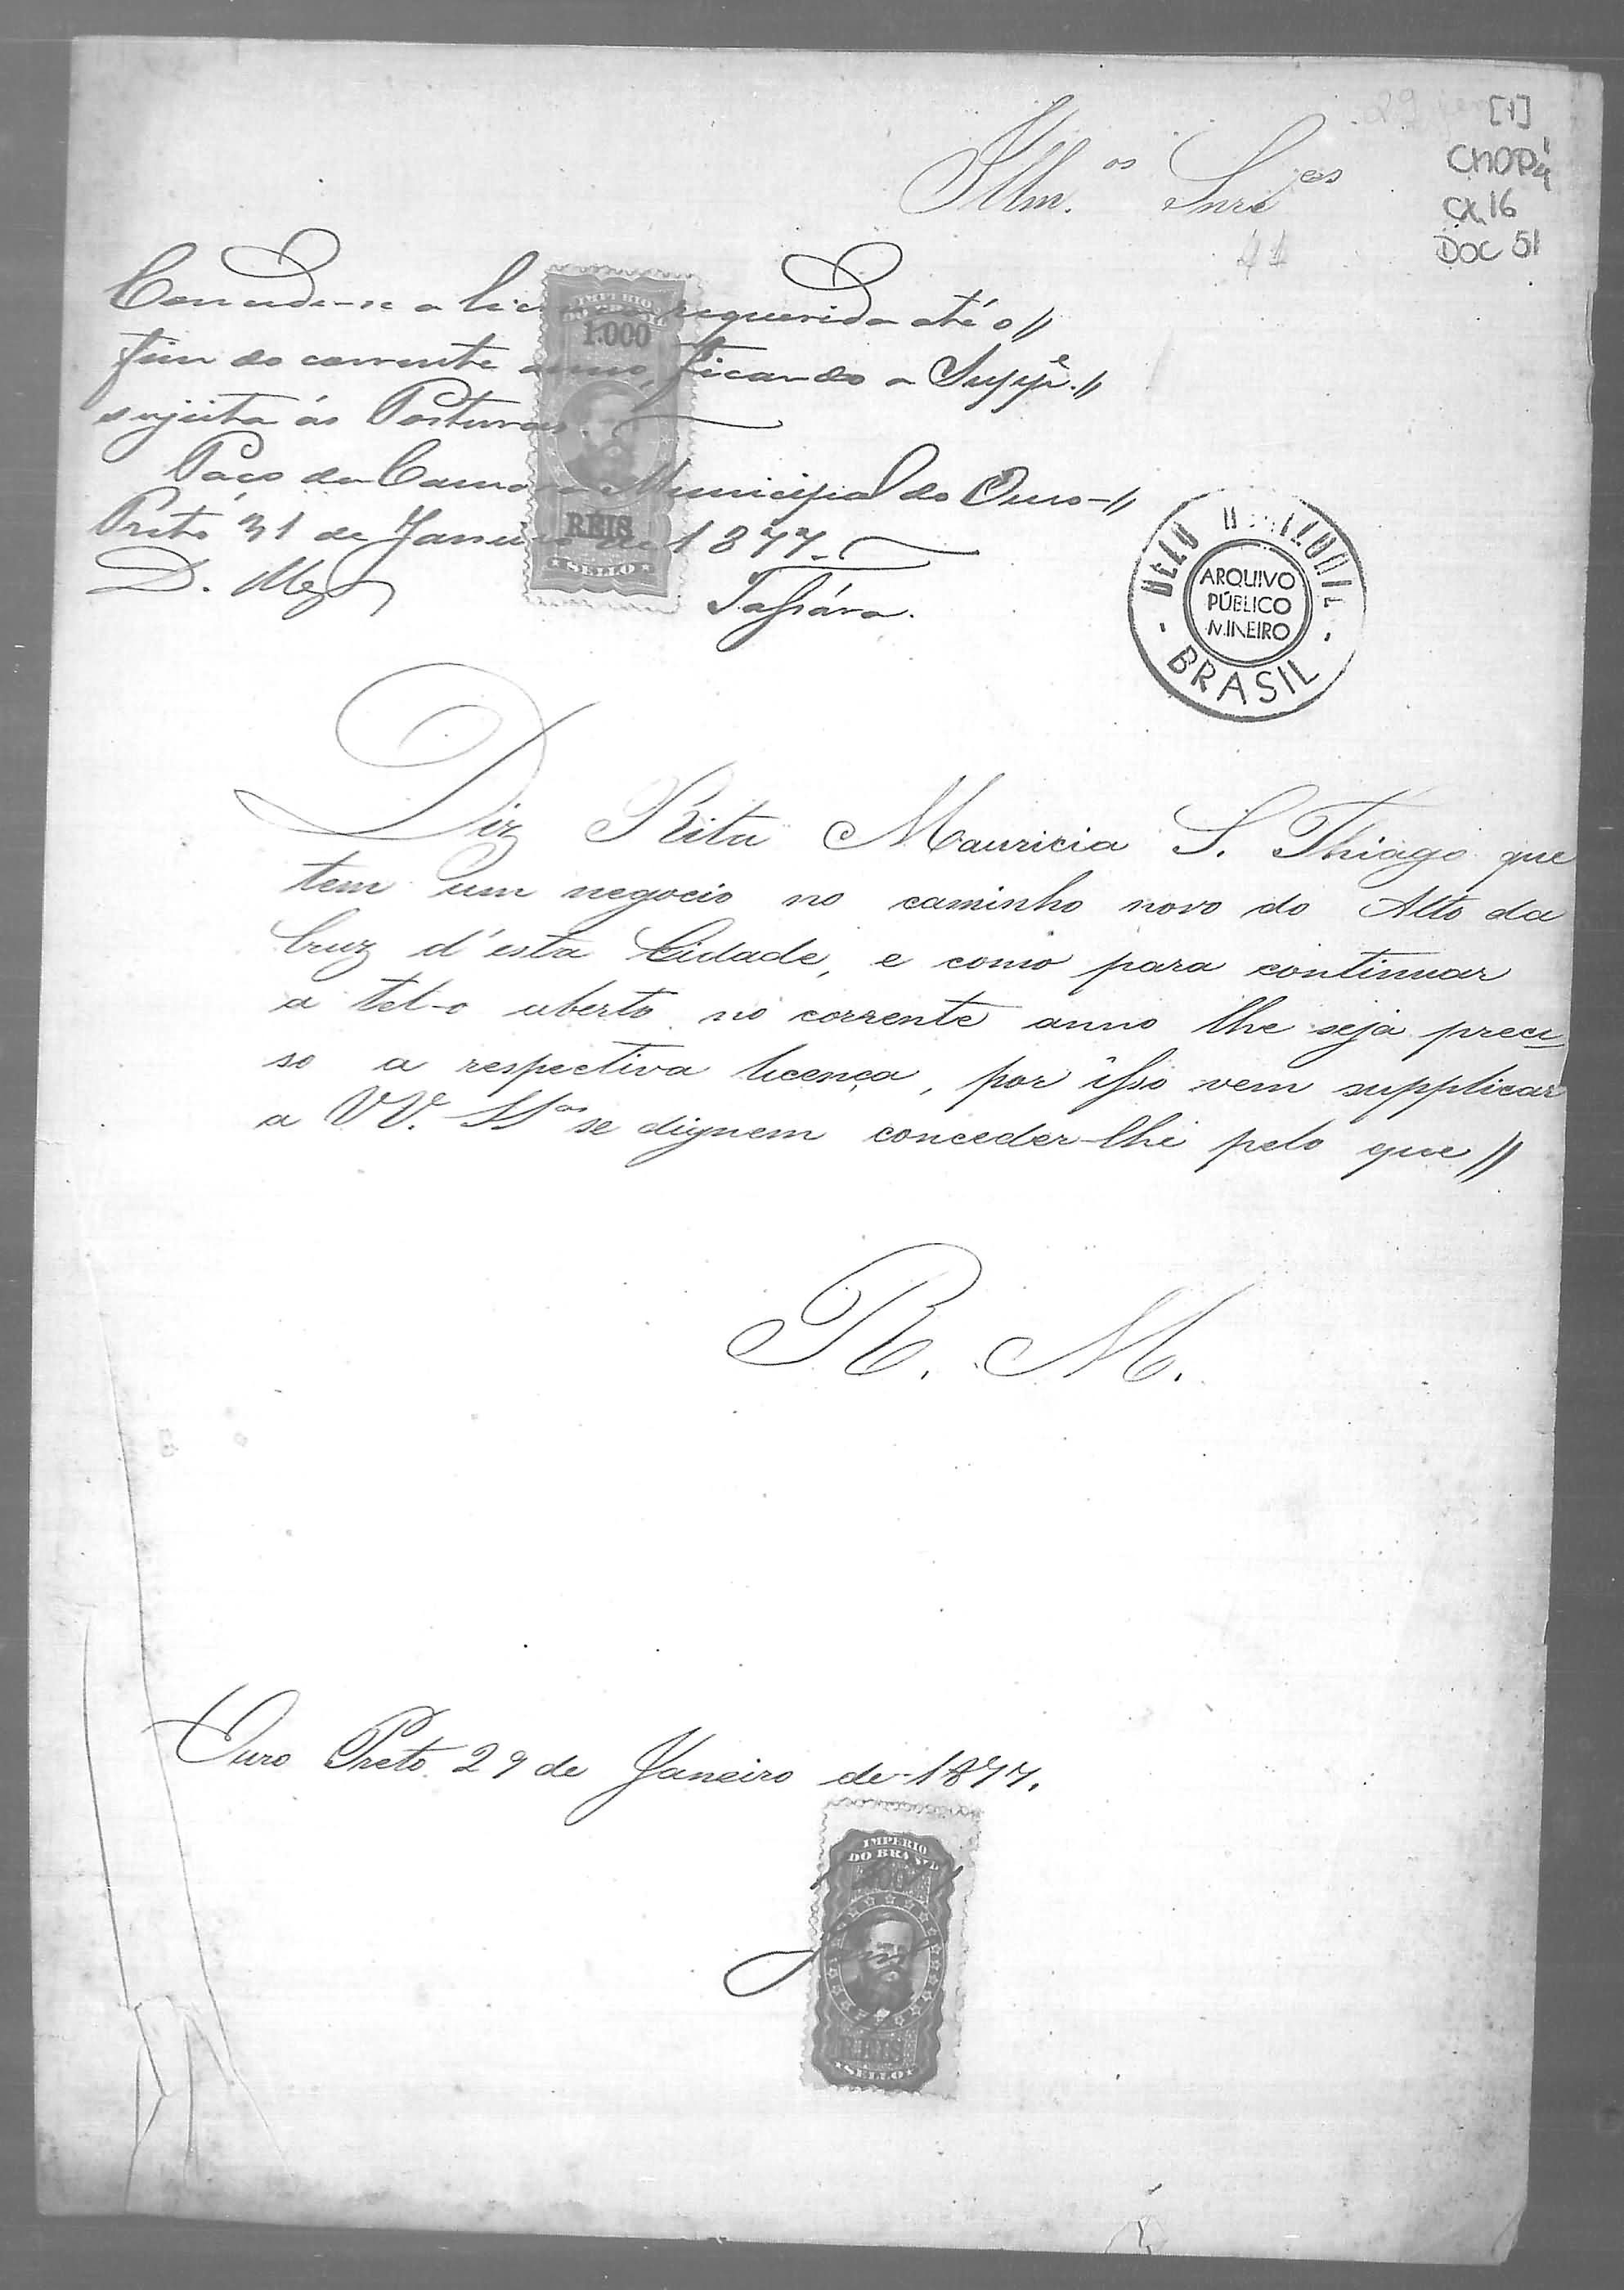 [1]
CMOP
CX. 16
DOC 51
Illm.os Snres
Concede-se a licença requerida até o //
fim do corrente anno, ficando a Suppe. //
sujeita ás Posturas.
Paço da Camara Municipal do Ouro- //
Preto 31 de Janeiro de 1877.
D. Mez
Tassára.
IMPERIO
DO BRASIL
1:000
REIS
SELLO
BELLO HORIZONTE
ARQUIVO
PÚBLICO
MINEIRO
BRASIL
Diz Rita Mauricia S. Thiago que
tem um negocio no caminho novo do Alto da
Cruz d'esta Cidade, e como para continuar
a tel-o aberto no corrente anno lhe seja preci-
so a respectiva licença, por isso vem supplicar
a VV. SSas se dignem conceder-lhe pelo que //
R. M.
Ouro Preto 29 de Janeiro de 1877.
IMPERIO
DO BRASIL
REIS
SELLO